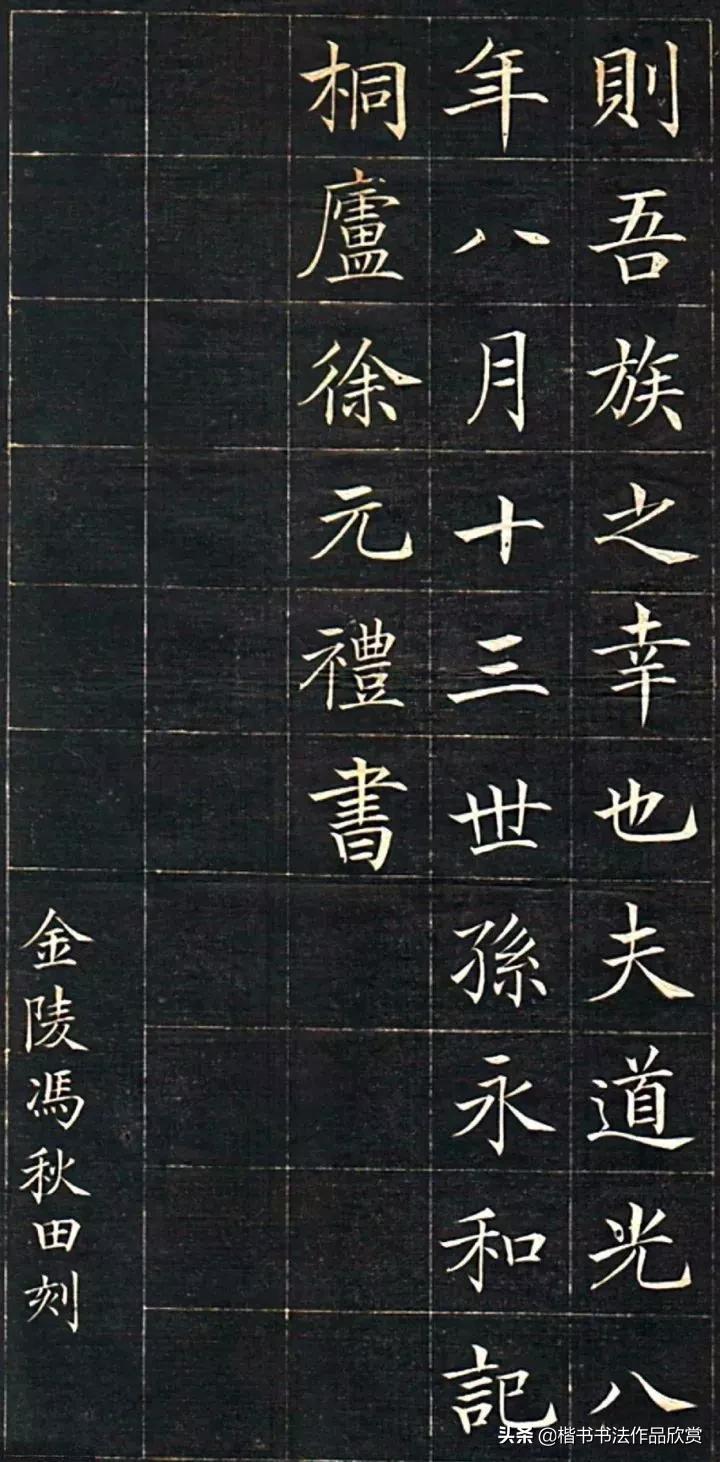 則吾族之幸也夫道光八
年八月十三世孫永和記
桐廬徐元禮書
金陵馮秋田刻
头条 @楷书书法作品欣赏